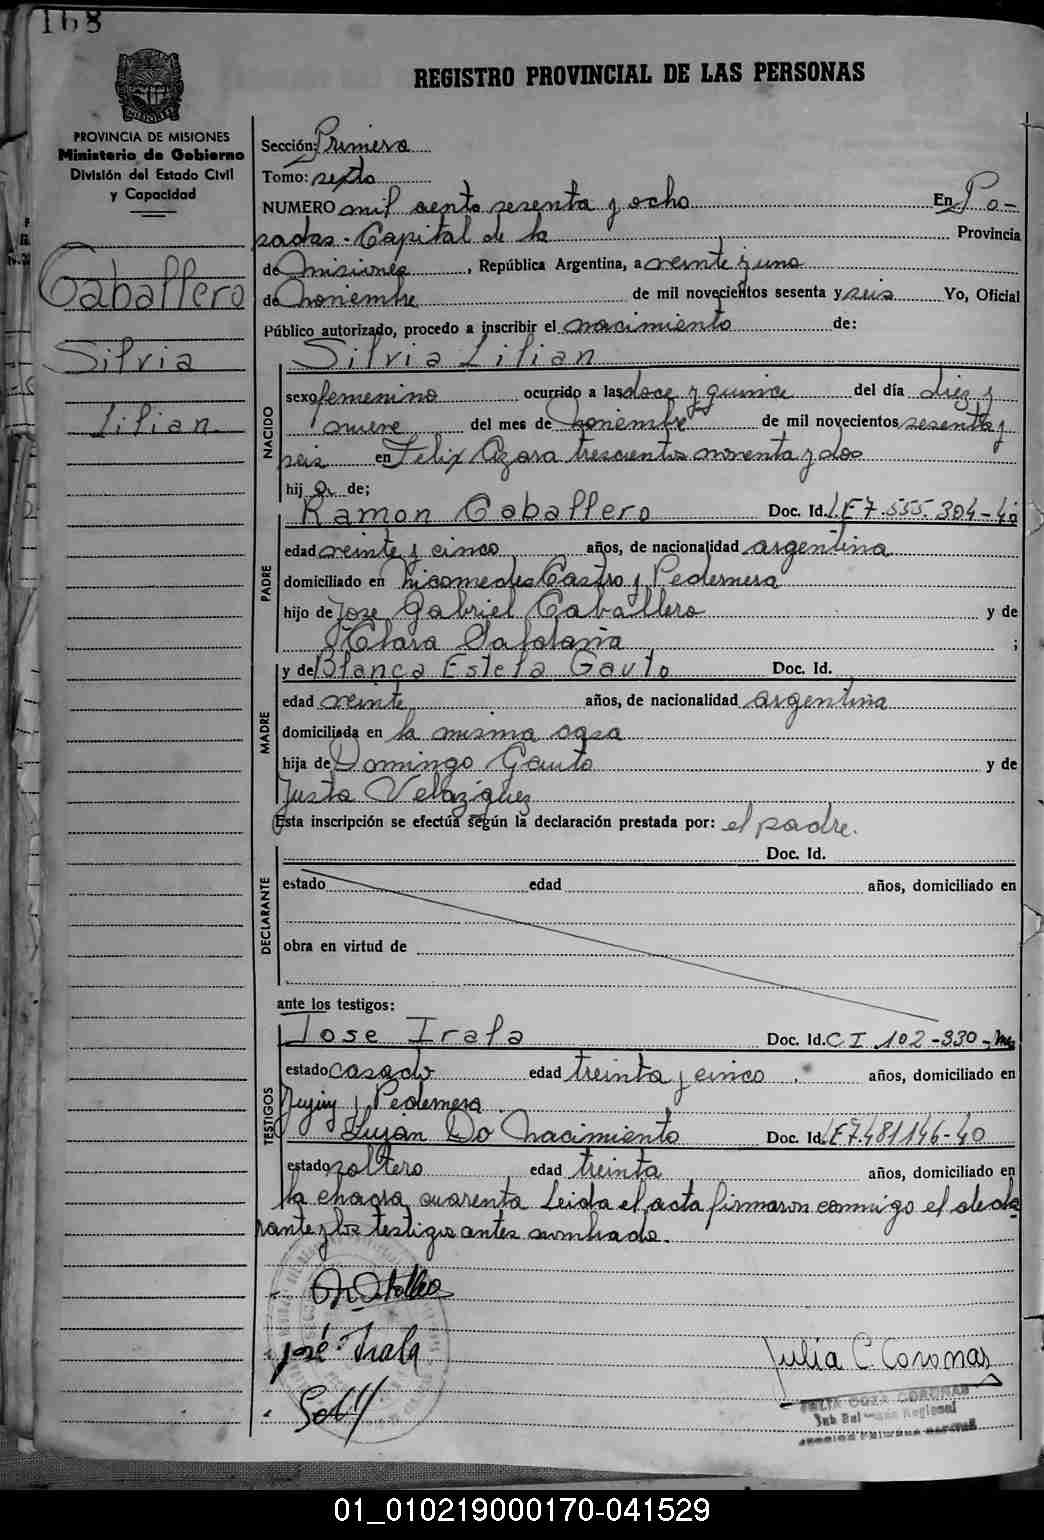 168
REGISTRO PROVINCIAL DE LAS PERSONAS
PROVINCIA DE MISIONES
Ministerio de Gobierno
División del Estado Civil
y Capacidad
Caballero
Silvia
Lilian
Sección: Primera
Tomo: sexto
NUMERO mil ciento sesenta y ocho En Po-
sadas - Capital de la Provincia
de Misiones, República Argentina, a veinte y uno
de Noviembre de mil novecientos sesenta y seis Yo, Oficial
Público autorizado, procedo a inscribir el nacimiento de:
Silvia Lilian
NACIDO
sexo femenino ocurrido a las doce y quince del día diez y
nueve del mes de Noviembre de mil novecientos sesenta y
seis en Felix Azara trescientos noventa y dos
hij a de;
PADRE
Ramon Caballero Doc. Id. L.E 7.555-304-40
edad veinte y cinco años, de nacionalidad argentina
domiciliado en Nicomedes Castro y Pedernera
hijo de Jose Gabriel Caballero y de
Clara Saldaña ;
MADRE
y de Blanca Estela Gauto Doc. Id.
edad veinte años, de nacionalidad argentina
domiciliada en la misma casa
hija de Domingo Gauto y de
Justa Velazquez
Esta inscripción se efectúa según la declaración prestada por: el padre.
DECLARANTE
Doc. Id.
estado edad años, domiciliado en
obra en virtud de
ante los testigos:
TESTIGOS
Jose Irala Doc. Id. C I 102-330-Mns
estado casado edad treinta y cinco años, domiciliado en
Jujuy y Pedernera
Luján Do Nacimiento Doc. Id. L.E 7.481146-40
estado soltero edad treinta años, domiciliado en
la chacra cuarenta Leida el acta firmaron conmigo el decla
rante y los testigos antes nombrado.
José Irala
Julia C. Coronas
JULIA COZA CORONAS
Regional
01_010219000170-041529